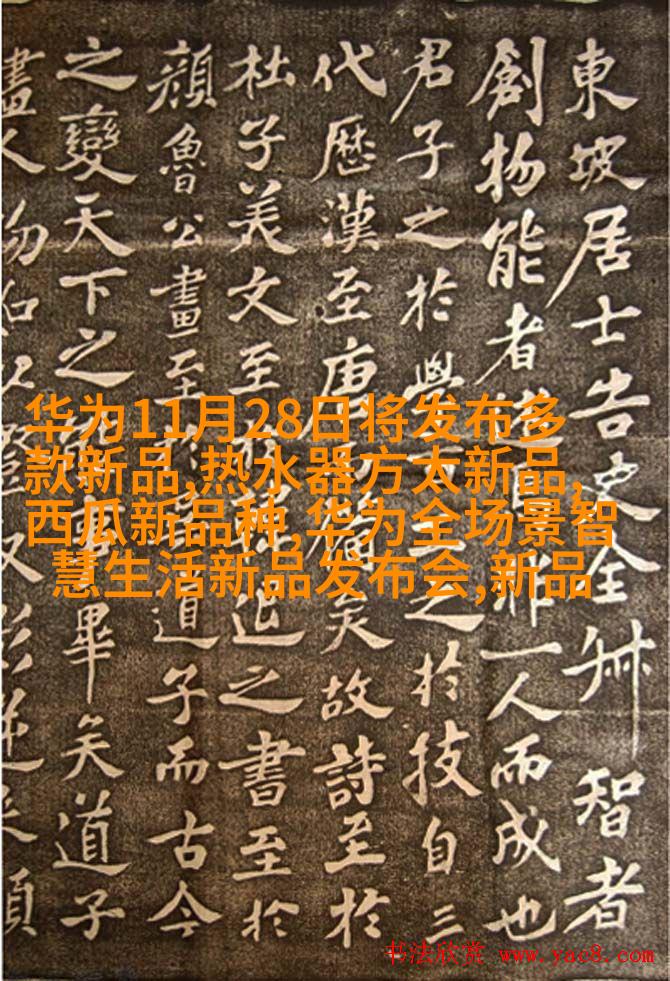 東坡居士告史全叔智者
創物能者非一人而成也
君子之於學之於技自三
代歷漢至唐矣故詩至於
杜子美文至退之書至於
顏魯公畫至道子而古今
之變天下之畢矣道子
畫人物
华为11月28日将发布多
款新品,热水器方太新品,
西瓜新品种,华为全场景智
慧生活新品发布会,新品
书法欣赏 www.yac8.com